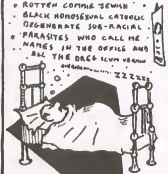 ROTTEN COMMIE JEWISH
BLACK HOMOSEXUAL CATHOLIC
DEGENERATE SUB-RACIAL
PARASITES WHO CALL ME
NAMES IN THE OFFICE AND
ALL THE DREG SCUM VERMIN
ZZZZZZZ